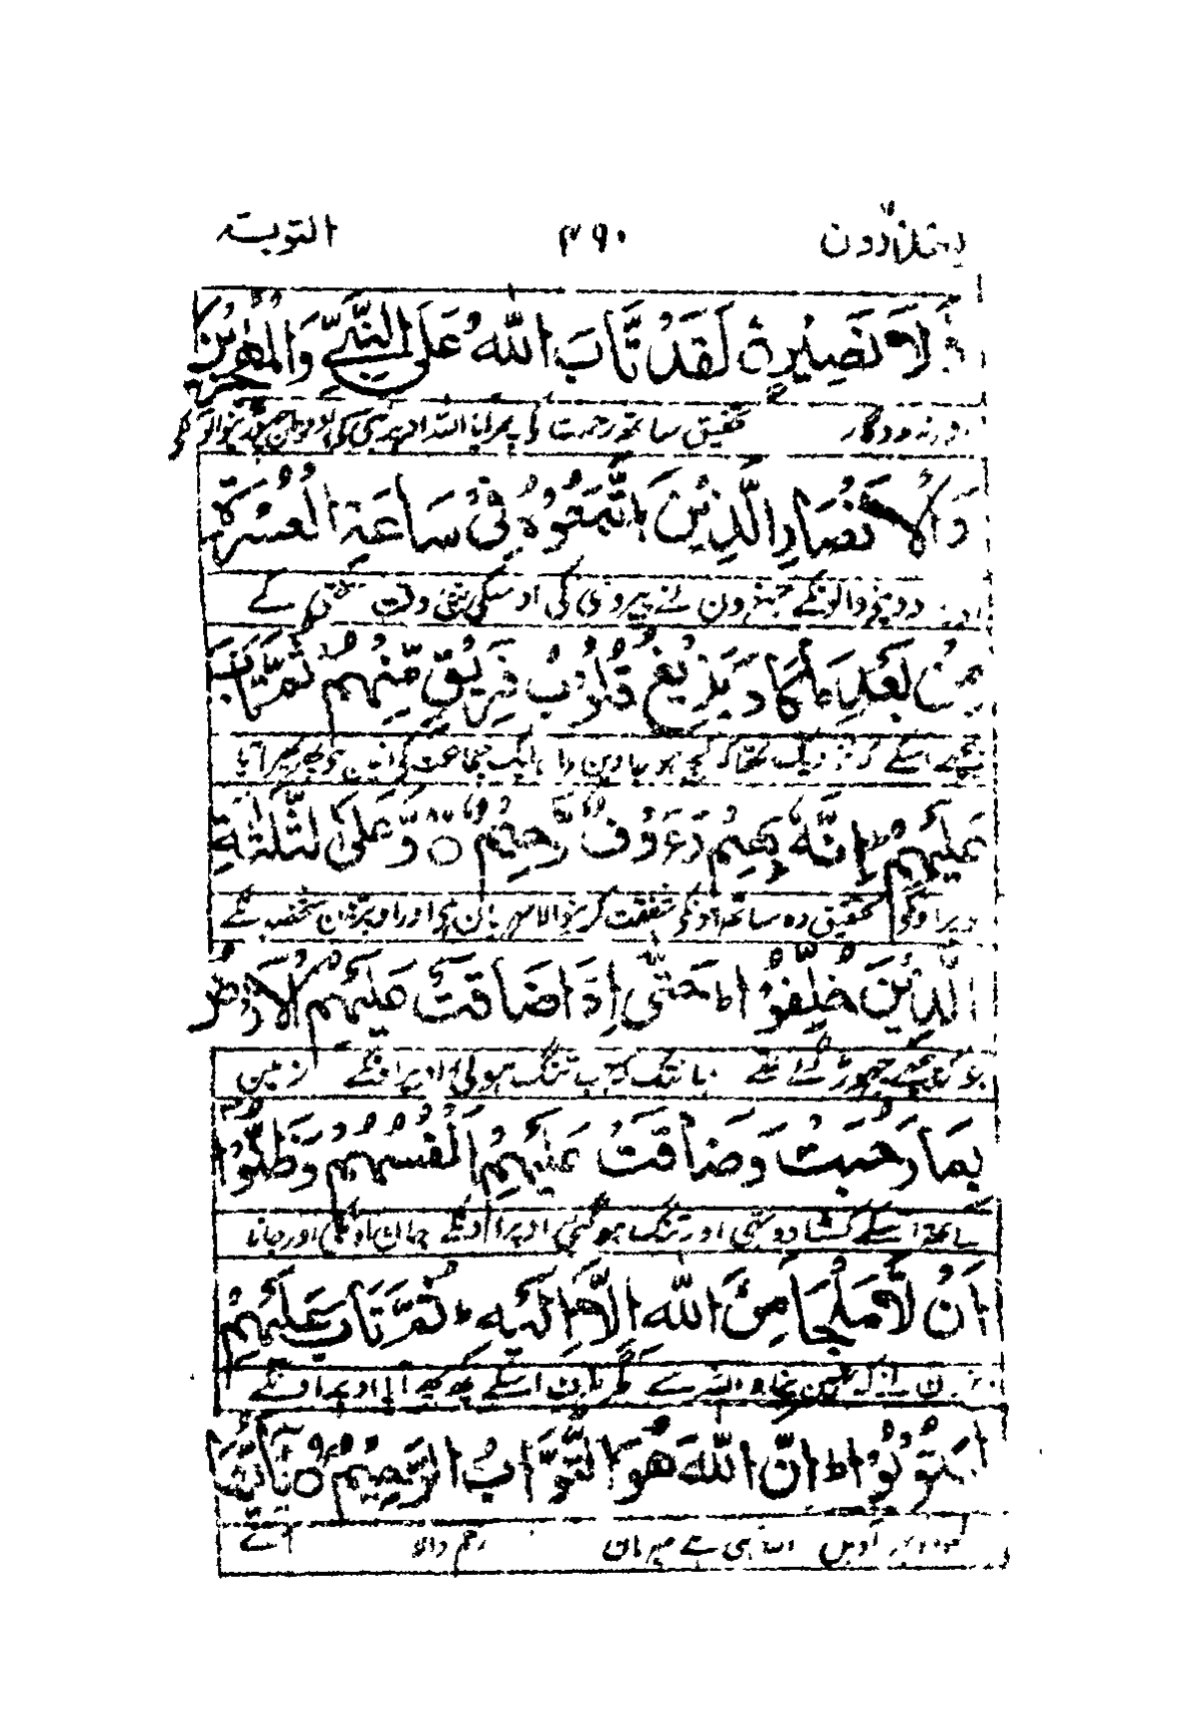 یعتذرون ۳۹۰ التوبة
وَّلَا نَصِيْرٍ ۝ لَقَدْ تَّابَ اللّٰهُ عَلَى النَّبِيِّ وَالْمُهٰجِرِيْنَ
اور نہ مددگار تحقیق ساتھ رحمت کے پھر آیا اللہ اوپر نبی کے اور
وَالْاَنْصَارِ الَّذِيْنَ اتَّبَعُوْهُ فِيْ سَاعَةِ الْعُسْرَةِ
اور مدد دینے والونکے جنہوں نے پیروی کی اوسکی بیچ وقت سختی کے
مِنْ بَعْدِ مَا كَادَ يَزِيْغُ قُلُوْبُ فَرِيْقٍ مِّنْهُمْ ثُمَّ تَابَ
پیچھے اسکے کہ نزدیک تھا کہ کج ہو جاویں دل ایک جماعت کے ان میں پھر پھر آیا
عَلَيْهِمْ ؕ اِنَّهٗ بِهِمْ رَءُوْفٌ رَّحِيْمٌ ۝ وَّعَلَى الثَّلٰثَةِ
اوپر اونکے تحقیق وہ ساتھ اونکے شفقت کرنیوالا مہربان ہے اور اوپر تین شخص کے
الَّذِيْنَ خُلِّفُوْا ؕ حَتّٰٓى اِذَا ضَاقَتْ عَلَيْهِمُ الْاَرْضُ
جو پیچھے چھوڑے گئے تھے یہانتک کہ جب تنگ ہوئی اوپر انکے زمین
بِمَا رَحُبَتْ وَضَاقَتْ عَلَيْهِمْ اَنْفُسُهُمْ وَظَنُّوْٓا
ساتھ اسکے کہ کشادہ تھی اور تنگ ہو گئی اوپر اونکے جان اونکی اور جانا
اَنْ لَّا مَلْجَاَ مِنَ اللّٰهِ اِلَّآ اِلَيْهِ ؕ ثُمَّ تَابَ عَلَيْهِمْ
اللہ سے مگر طرف اسکے پھر پھر آیا اوپر انکے
لِيَتُوْبُوْا ؕ اِنَّ اللّٰهَ هُوَ التَّوَّابُ الرَّحِيْمُ ۝ يٰٓاَيُّهَا
آویں اللہ ہی ہے مہربان رحم والا اے